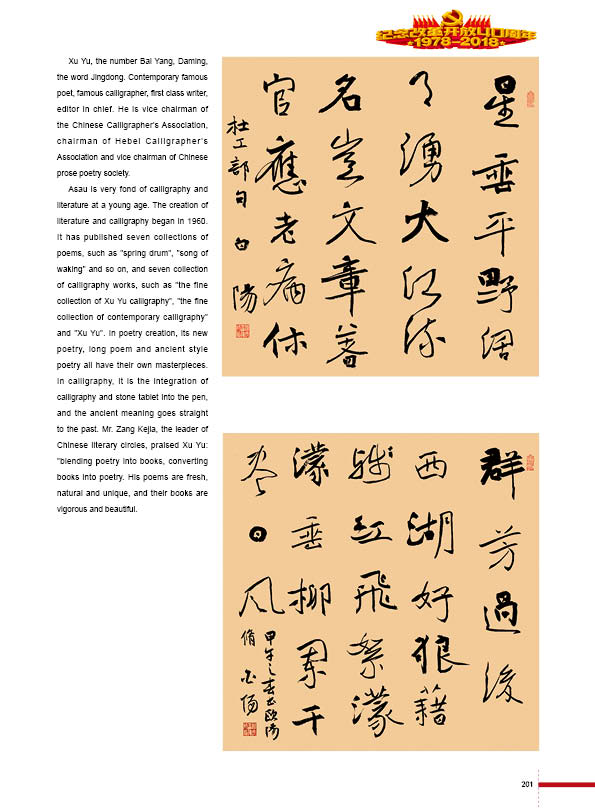 纪念改革开放40周年
1978-2018
Xu Yu, the number Bai Yang, Daming,
the word Jingdong. Contemporary famous
poet, famous calligrapher, first class writer,
editor in chief. He is vice chairman of
the Chinese Calligrapher's Association,
chairman of Hebei Calligrapher's
Association and vice chairman of Chinese
prose poetry society.
Asau is very fond of calligraphy and
literature at a young age. The creation of
literature and calligraphy began in 1960.
It has published seven collections of
poems, such as "spring drum", "song of
waking" and so on, and seven collection
of calligraphy works, such as "the fine
collection of Xu Yu calligraphy", "the fine
collection of contemporary calligraphy"
and "Xu Yu". In poetry creation, its new
poetry, long poem and ancient style
poetry all have their own masterpieces.
In calligraphy, it is the integration of
calligraphy and stone tablet into the pen,
and the ancient meaning goes straight
to the past. Mr. Zang Kejia, the leader of
Chinese literary circles, praised Xu Yu:
"blending poetry into books, converting
books into poetry. His poems are fresh,
natural and unique, and their books are
vigorous and beautiful.
星垂平野阔
月湧大江流
名豈文章著
官應老病休
杜工部句 白陽
群芳過後
西湖好狼籍
殘紅飛絮濛
濛垂柳闌干
尽日風
甲午之春书欧阳
脩 白陽
201